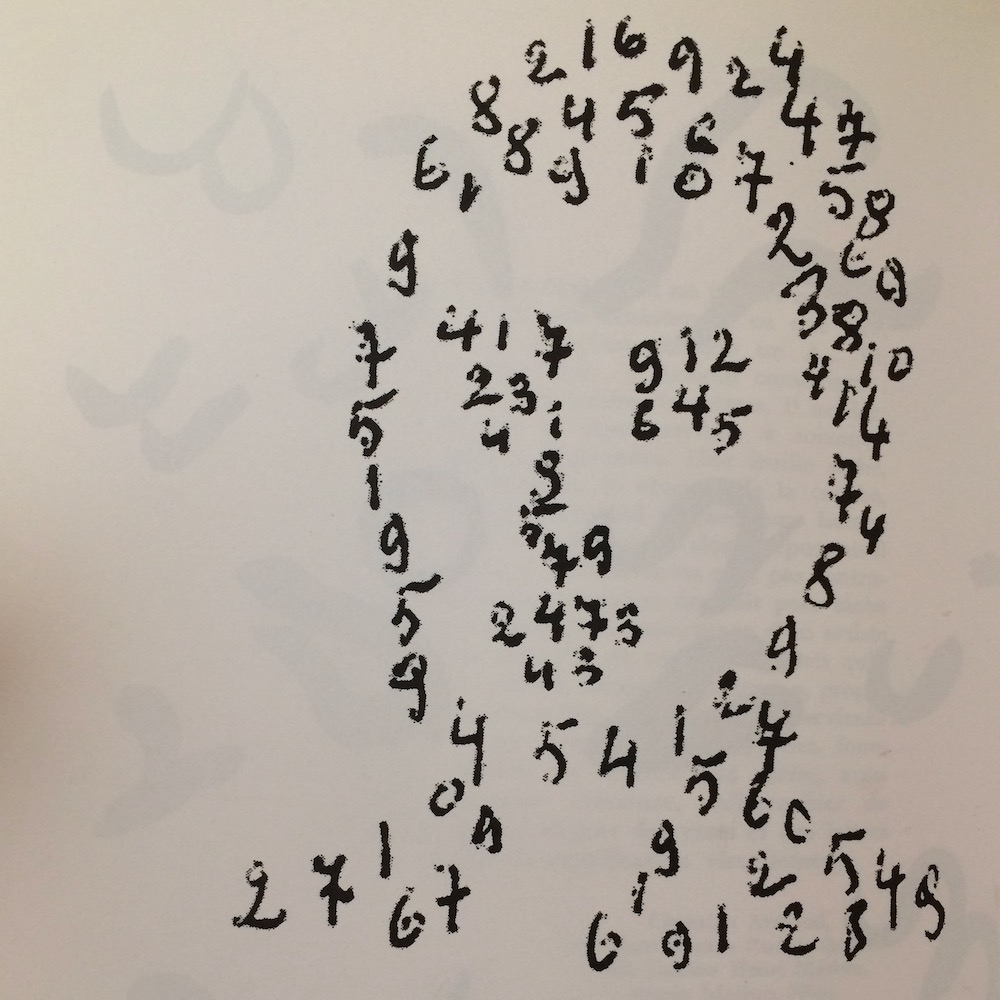 2 1 6 9 2 4
8 4 5 6 4 7
6 1 8 9 1 0 7 5 8
9 2 6 9
3 8
7 4 1 7 9 1 2 4 10
2 3 6 4 5 1 4
5 4 1
1 8 7 4
9 5 7 9 8
5 2 4 7 3 9
9 4 3 2
4 5 4 1 7
0 5 6 0
9 9 5
2 7 1 6 7 1 2 4 9
6 9 1 2 8